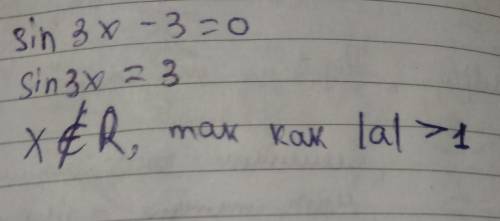 sin 3x - 3 = 0
sin 3x = 3
x ∉ R, так как |a| > 1